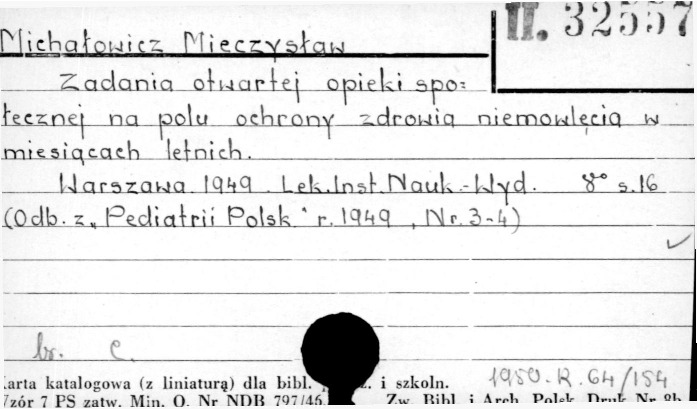 II. 32557
Michałowicz Mieczysław
Zadania otwartej opieki spo=
łecznej na polu ochrony zdrowia niemowlęcia w
miesiącach letnich.
Warszawa 1949. Lek.Inst.Nauk.-Wyd. 8° s.16
(Odb. z „Pediatrii Polsk." r. 1949, Nr. 3-4)
br. C.
1950.R.64/154
karta katalogowa (z liniaturą) dla bibl. i szkoln.
Wzór 7 PS zatw. Min. O. Nr NDB 797/46 Zw. Bibl. i Arch. Polsk. Druk Nr 8b